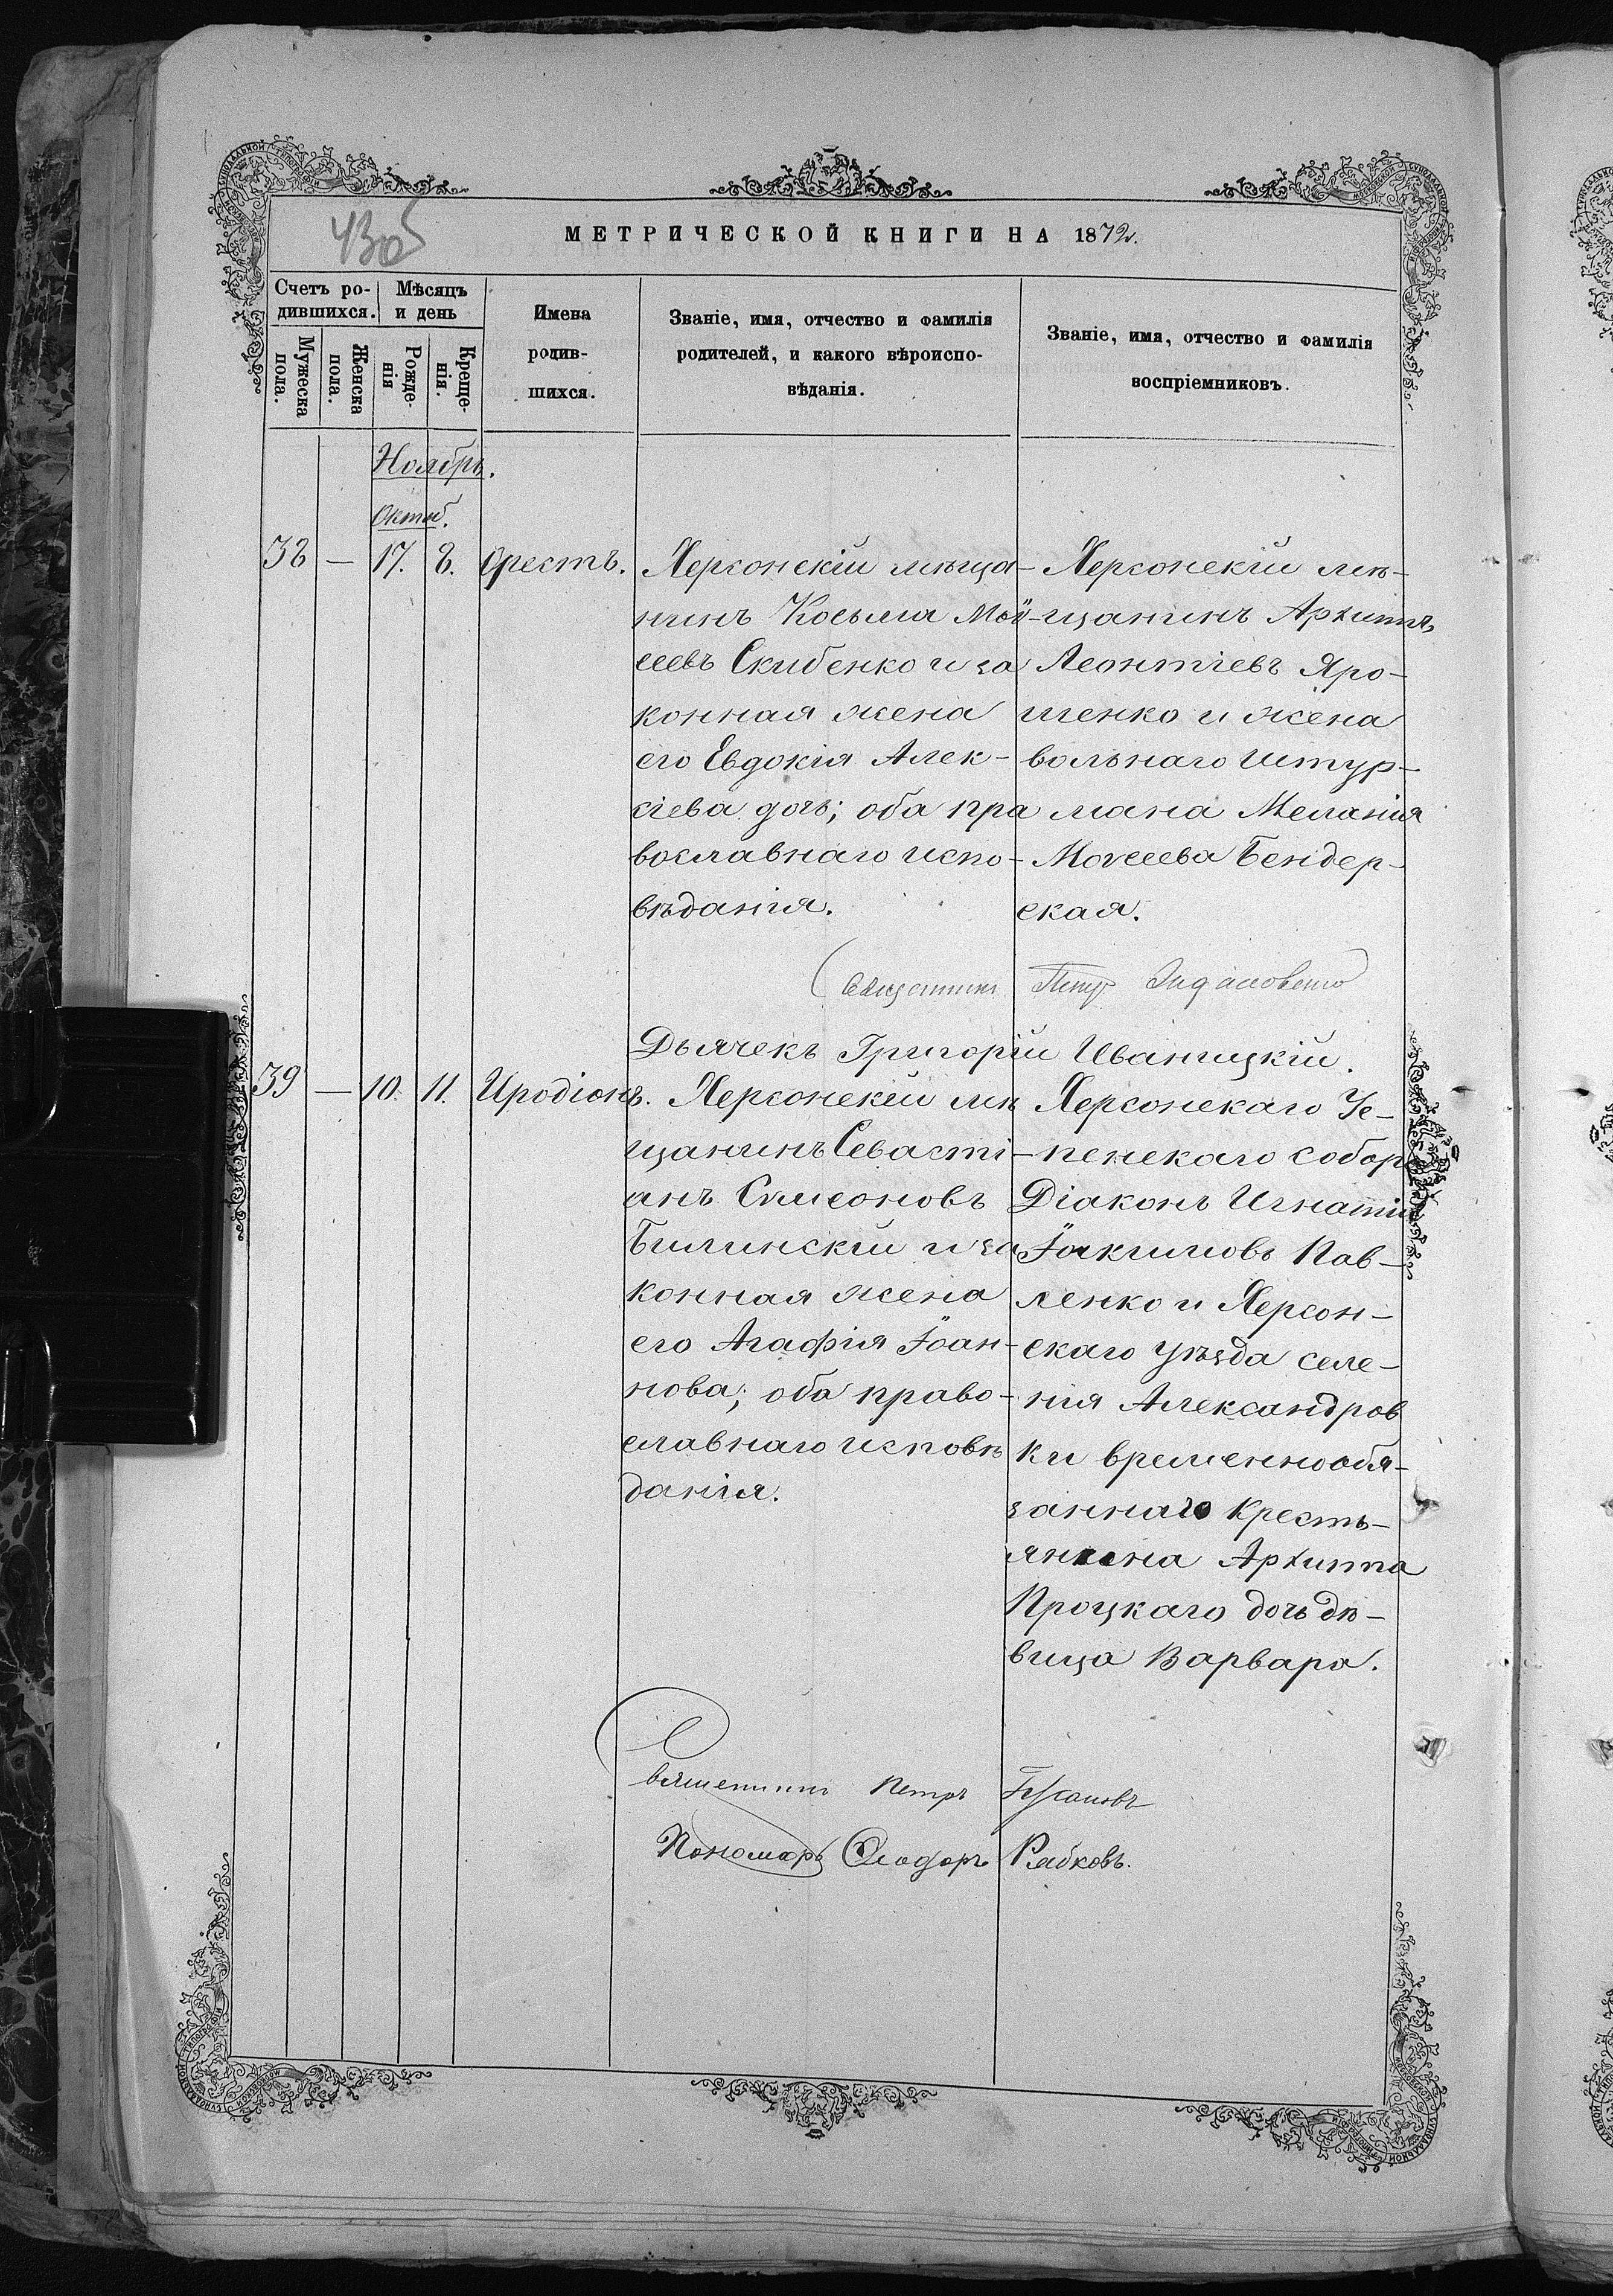 430б
МЕТРИЧЕСКОЙ КНИГИ НА 1872.
Счетъ ро-
дившихся.
Мѣсяцъ
и день
Мужеска
пола.
Женска
пола.
Рожде-
нія
Креще-
нія.
Имена
родив-
шихся.
Званіе, имя, отчество и фамилія
родителей, и какого вѣроиспо-
вѣданія.
Званіе, имя, отчество и фамилія
воспріемниковъ.
Ноябрь.
Октяб.
38 — 17. 8. Орестъ.
Херсонскій мѣща-
нинъ Косьма Мой-
сеевъ Скибенко и за
конная жена
его Евдокія Алек-
сіева дочь; оба пра
вославнаго испо-
вѣданія.
Херсонскій мѣ-
щанинъ Архиппъ
Леонтіевъ Яро-
шенко и жена
вольнаго штур-
мана Меланія
Моѵсеева Бендер-
ская.
Священникъ Петръ
Дьячекъ Григорій Иваницкій.
39 — 10. 11. Иродіонъ.
Херсонскій мѣ
щанинъ Севасті-
анъ Симеоновъ
Билинскій и за
конная жена
его Агафія Іоан-
нова; оба право-
славнаго исповѣ
данія.
Херсонскаго Ус-
пенскаго собора
Діаконъ Игнатій
Іоакимовъ Пав-
ленко и Херсон-
скаго уѣзда селе-
нія Александров
ки временнообя-
заннаго кресть-
янина Архиппа
Процкаго дочь дѣ-
вица Варвара.
Священникъ Петръ
Пономарь Ѳеодоръ Рябковъ.